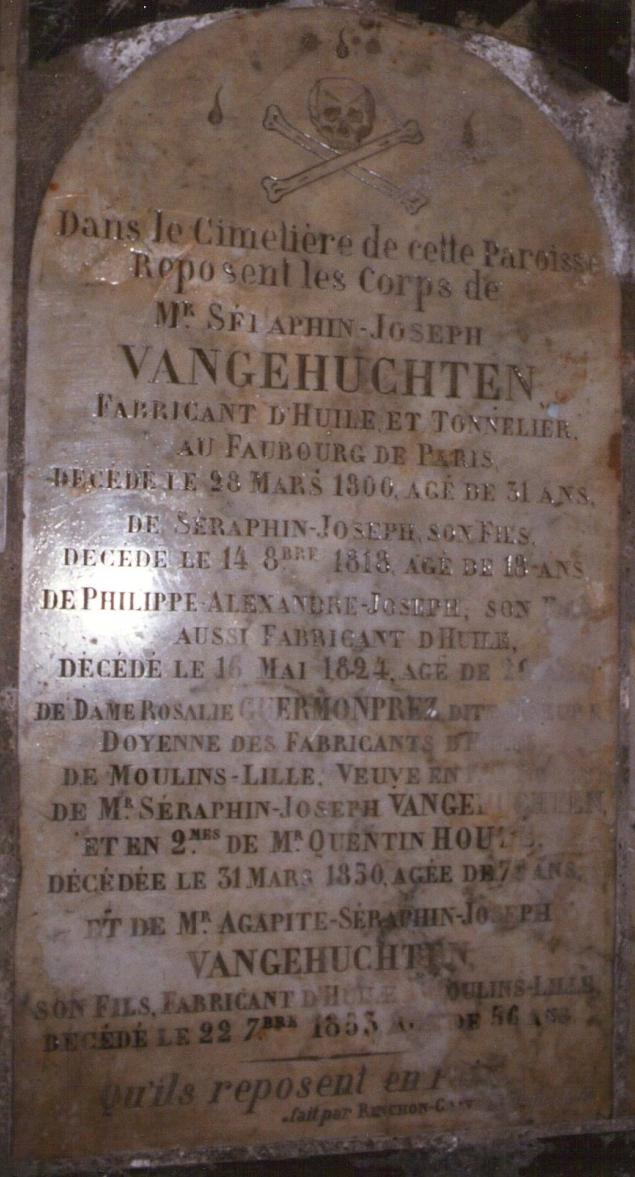 Dans le Cimetière de cette Paroisse
Reposent les Corps de
Mʳ SÉRAPHIN-JOSEPH
VANGEHUCHTEN,
FABRICANT D'HUILE ET TONNELIER,
AU FAUBOURG DE PARIS,
DÉCÉDÉ LE 28 MARS 1800, AGÉ DE 31 ANS,
DE SÉRAPHIN-JOSEPH, SON FILS,
DÉCÉDÉ LE 14 8ᴮᴿᴱ 1818, AGÉ DE 18 ANS
DE PHILIPPE-ALEXANDRE-JOSEPH, SON
AUSSI FABRICANT D'HUILE,
DÉCÉDÉ LE 16 MAI 1824, AGÉ DE
DE DAME ROSALIE GUERMONPREZ DITE
DOYENNE DES FABRICANTS
DE MOULINS-LILLE, VEUVE EN
DE Mᴿ SÉRAPHIN-JOSEPH VANGEHUCHTEN,
ET EN 2.ᴹᴱˢ DE Mᴿ QUENTIN
DÉCÉDÉE LE 31 MARS 1850, AGÉE DE ANS,
ET DE Mᴿ AGAPITE-SÉRAPHIN-JOSEPH
VANGEHUCHTEN
SON FILS, FABRICANT D'HUILE A MOULINS-LILLE,
DÉCÉDÉ LE 22 7ᴮᴿᴱ 1853 AGÉ DE 56 ANS
Qu'ils reposent en
fait par